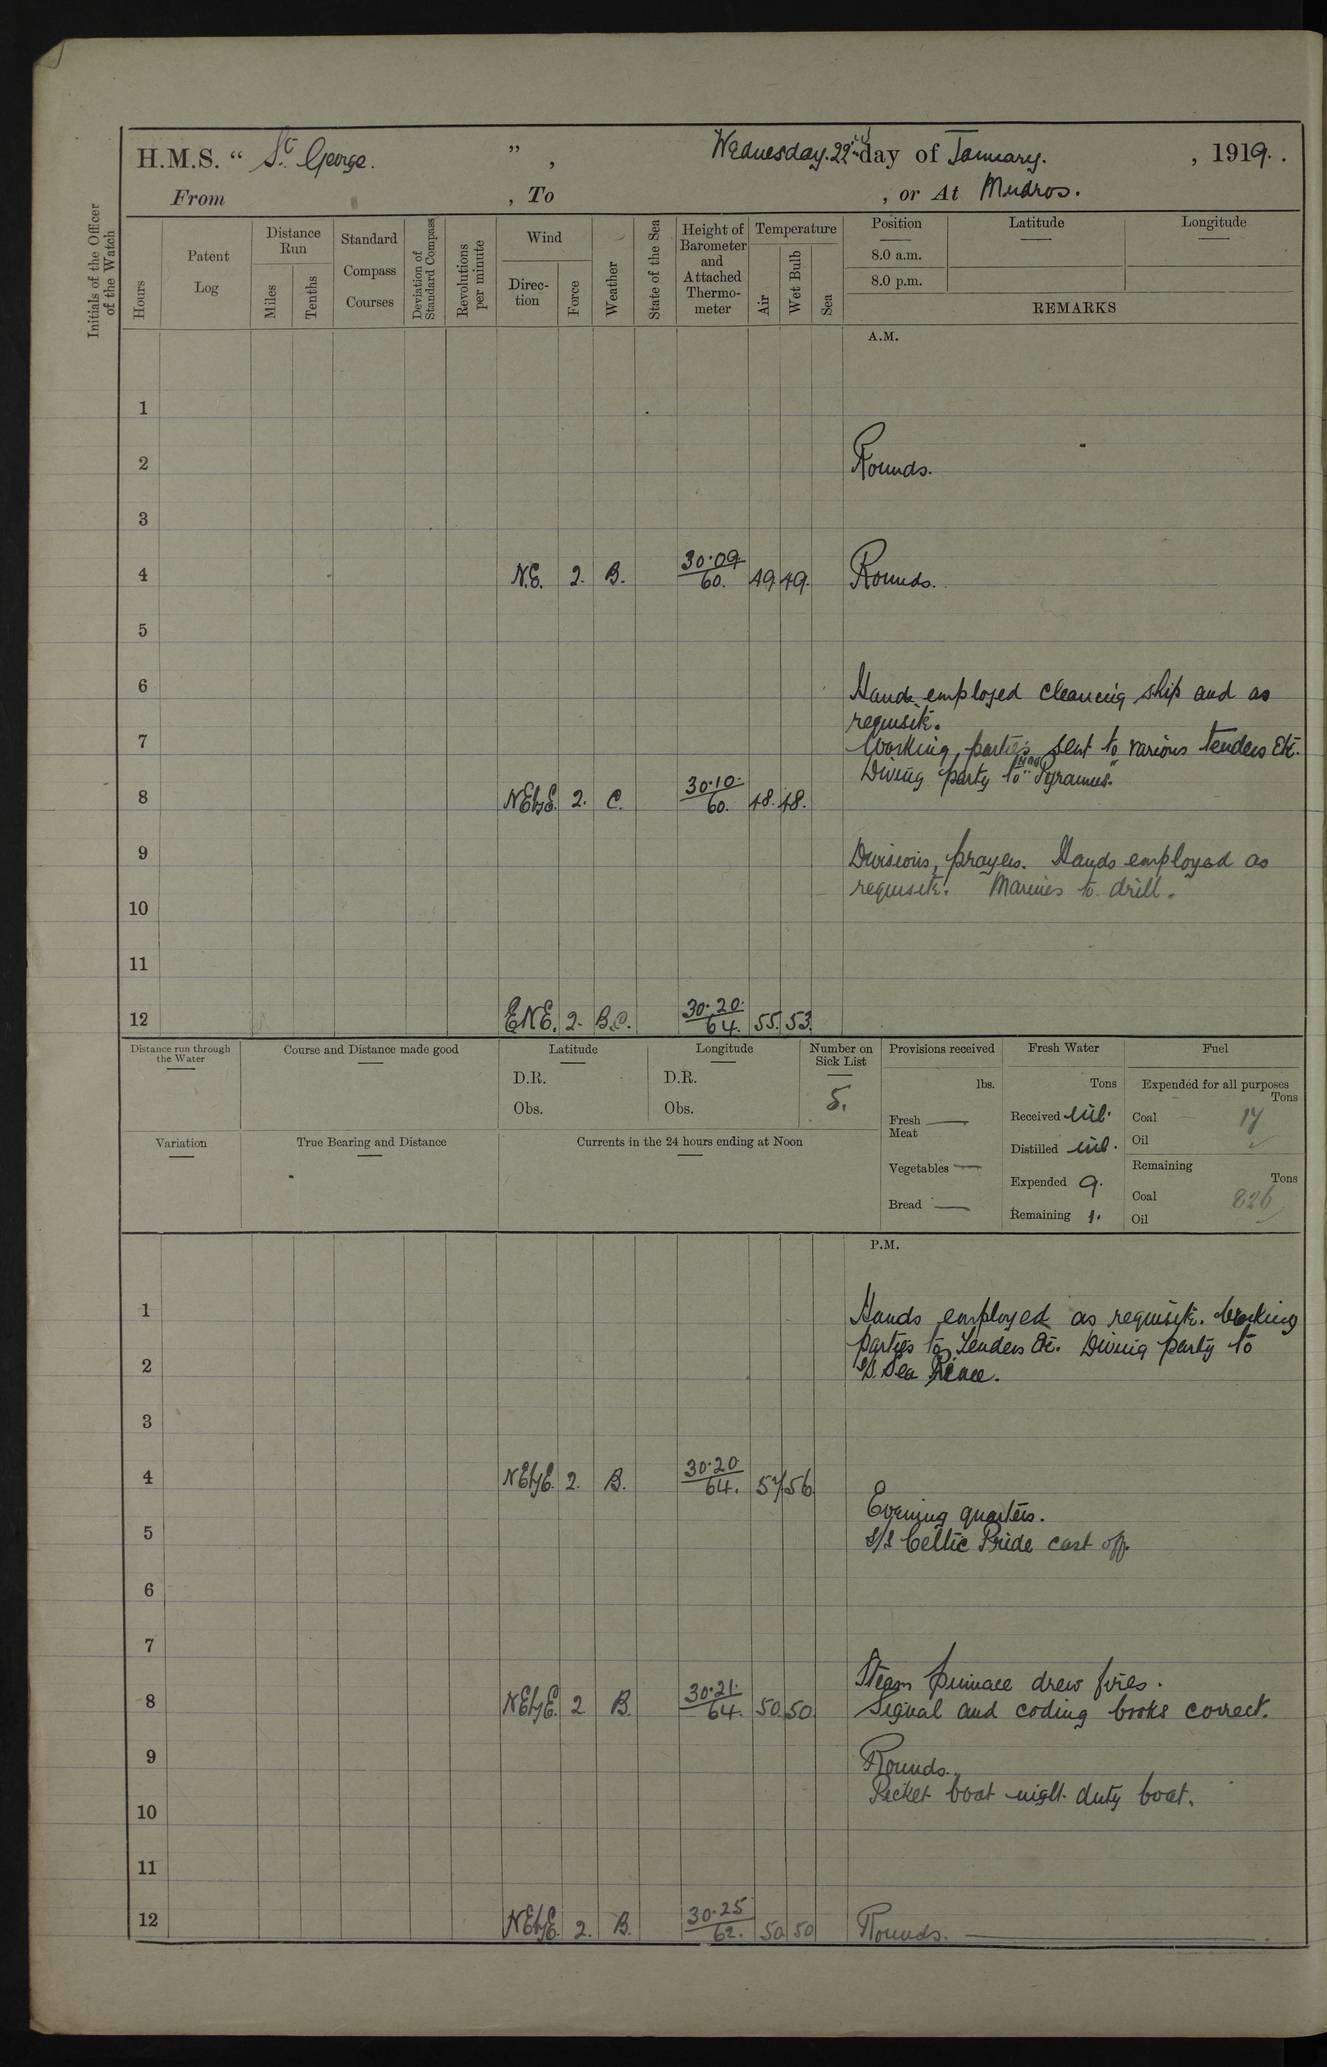 H.M.S. “ St George. ” , Wednesday. 22nd day of January. , 1919. .
From , To , or At Mudros.
Initials of the Officer of the Watch
Hours
Patent Log
Distance Run
Miles
Tenths
Standard Compass Courses
Deviation of Standard Compass
Revolutions per minute
Wind
Direc-tion
Force
Weather
State of the Sea
Height of Barometer and Attached Thermo-meter
Temperature
Air
Wet Bulb
Sea
Position
8.0 a.m.
8.0 p.m.
Latitude
Longitude
REMARKS
A.M.
1
2 Rounds.
3
4 N.E. 2. B. 30.09/60. 49. 49. Rounds.
5
6 Hands employed cleaning ship and as
requisite.
7 Working parties sent to various tenders Etc.
Diving party to HMS "Pyramus."
8 NEbyE. 2. C. 30.10./60. 48. 48.
9 Divisions, prayers. Hands employed as
requisite. Marines to drill.
10
11
12 ENE. 2. B.C. 30.20./64. 55. 53.
Distance run through the Water
Course and Distance made good
Latitude
D.R.
Obs.
Longitude
D.R.
Obs.
Number on Sick List
5.
Provisions received
lbs.
Fresh Meat —
Vegetables —
Bread —
Fresh Water
Tons
Received nil.
Distilled nil.
Expended 9.
Remaining 1.
Fuel
Expended for all purposes
Tons
Coal 17
Oil
Remaining
Tons
Coal 826
Oil
Variation
True Bearing and Distance
Currents in the 24 hours ending at Noon
P.M.
1 Hands employed as requisite. Working
parties to Tenders Etc. Diving party to
2 S/S. Sea
3
4 NEbyE. 2. B. 30.20/64. 57 56
Evening quarters.
5 S/S Celtic Pride cast off.
6
7
Steam pinnace drew fires.
8 NEbyE. 2 B. 30.21./64. 50. 50 Signal and coding books correct.
9 Rounds.
Picket boat night duty boat.
10
11
12 NEbyE. 2. B. 30.25/62. 50 50 Rounds.